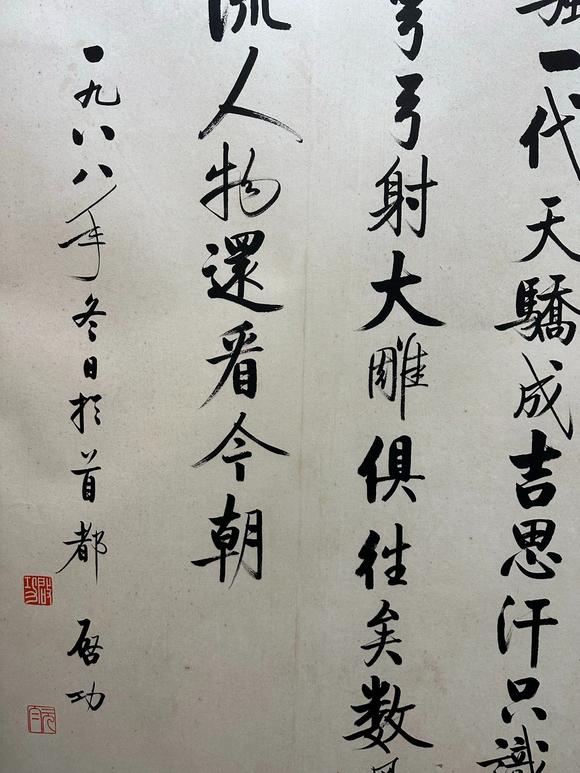 一代天驕成吉思汗只識
彎弓射大雕俱往矣數
流人物還看今朝
一九八八年冬日於首都 啓功
啓功
元白